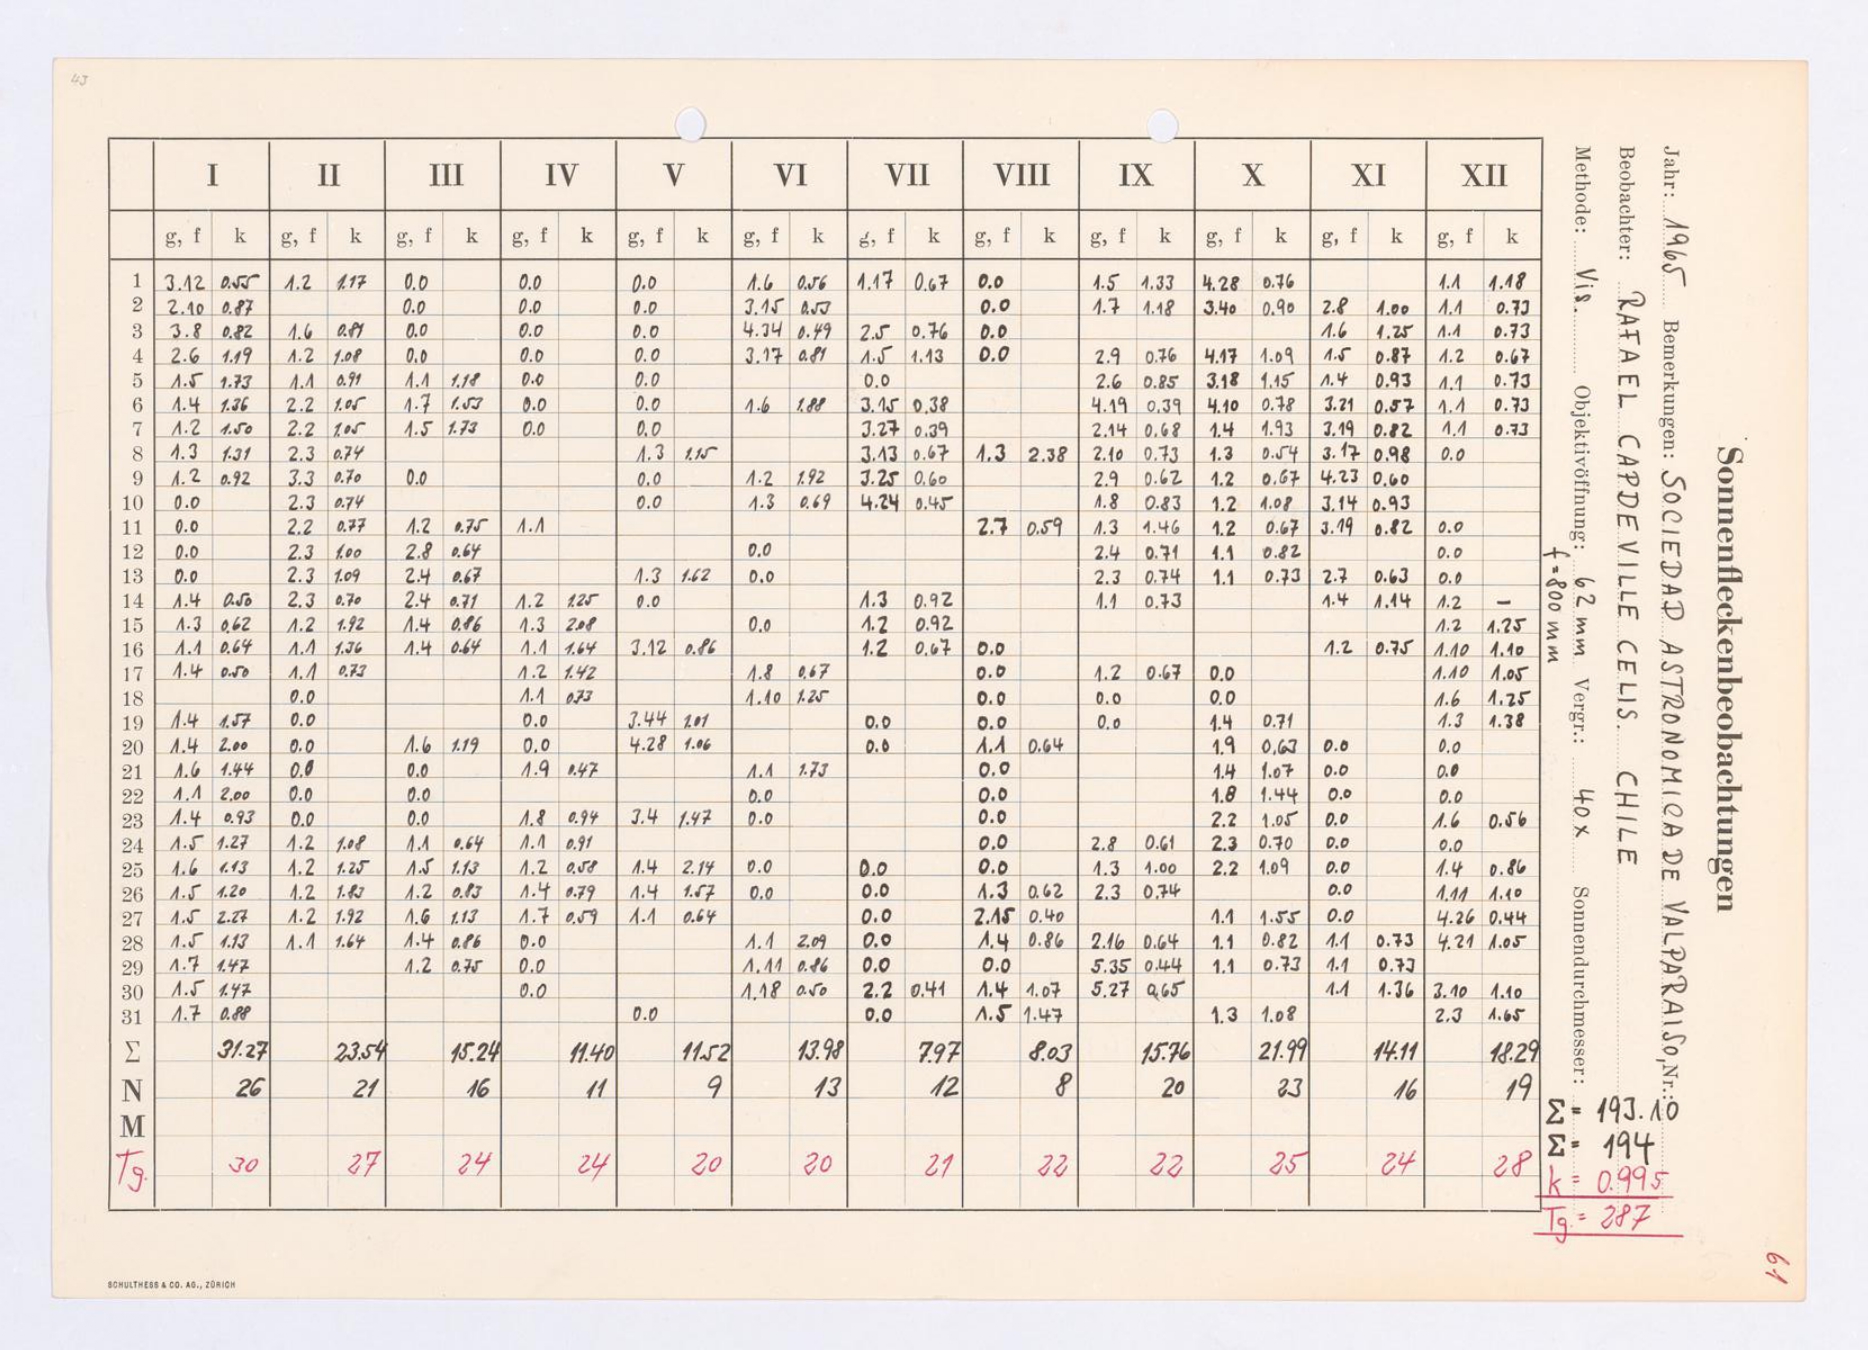 43
Sonnenfleckenbeobachtungen
Jahr: 1965 Bemerkungen: SOCIEDAD ASTRONOMICA DE VALPARAISO, Nr.:
Beobachter: RAFAEL CAPDEVILLE CELIS. CHILE
Methode: Vis. Objektivöffnung: 62 mm Vergr.: 40 x Sonnendurchmesser:
f = 800 mm
I II III IV V VI VII VIII IX X XI XII
g, f k g, f k g, f k g, f k g, f k g, f k g, f k g, f k g, f k g, f k g, f k g, f k
1 3.12 0.55 1.2 1.17 0.0 0.0 0.0 1.6 0.56 1.17 0.67 0.0 1.5 1.33 4.28 0.76 1.1 1.18
2 2.10 0.87 0.0 0.0 0.0 3.15 0.53 0.0 1.7 1.18 3.40 0.90 2.8 1.00 1.1 0.73
3 3.8 0.82 1.6 0.81 0.0 0.0 0.0 4.34 0.49 2.5 0.76 0.0 1.6 1.25 1.1 0.73
4 2.6 1.19 1.2 1.08 0.0 0.0 0.0 3.17 0.81 1.5 1.13 0.0 2.9 0.76 4.17 1.09 1.5 0.87 1.2 0.67
5 1.5 1.73 1.1 0.91 1.1 1.18 0.0 0.0 0.0 2.6 0.85 3.18 1.15 1.4 0.93 1.1 0.73
6 1.4 1.36 2.2 1.05 1.7 1.53 0.0 0.0 1.6 1.88 3.15 0.38 4.19 0.39 4.10 0.78 3.21 0.57 1.1 0.73
7 1.2 1.50 2.2 1.05 1.5 1.73 0.0 0.0 3.27 0.39 2.14 0.68 1.4 1.93 3.19 0.82 1.1 0.73
8 1.3 1.31 2.3 0.74 1.3 1.15 3.13 0.67 1.3 2.38 2.10 0.73 1.3 0.54 3.17 0.98 0.0
9 1.2 0.92 3.3 0.70 0.0 0.0 1.2 1.92 3.25 0.60 2.9 0.62 1.2 0.67 4.23 0.60
10 0.0 2.3 0.74 0.0 1.3 0.69 4.24 0.45 1.8 0.83 1.2 1.08 3.14 0.93
11 0.0 2.2 0.77 1.2 0.75 1.1 2.7 0.59 1.3 1.46 1.2 0.67 3.19 0.82 0.0
12 0.0 2.3 1.00 2.8 0.64 0.0 2.4 0.71 1.1 0.82 0.0
13 0.0 2.3 1.09 2.4 0.67 1.3 1.62 0.0 2.3 0.74 1.1 0.73 2.7 0.63 0.0
14 1.4 0.50 2.3 0.70 2.4 0.71 1.2 1.25 0.0 1.3 0.92 1.1 0.73 1.4 1.14 1.2 –
15 1.3 0.62 1.2 1.92 1.4 0.86 1.3 2.08 0.0 1.2 0.92 1.2 1.25
16 1.1 0.64 1.1 1.36 1.4 0.64 1.1 1.64 3.12 0.86 1.2 0.67 0.0 1.2 0.75 1.10 1.10
17 1.4 0.50 1.1 0.73 1.2 1.42 1.8 0.67 0.0 1.2 0.67 0.0 1.10 1.05
18 0.0 1.1 0.73 1.10 1.25 0.0 0.0 0.0 1.6 1.25
19 1.4 1.57 0.0 0.0 3.44 1.01 0.0 0.0 0.0 1.4 0.71 1.3 1.38
20 1.4 2.00 0.0 1.6 1.19 0.0 4.28 1.06 0.0 1.1 0.64 1.9 0.63 0.0 0.0
21 1.6 1.44 0.0 0.0 1.9 0.47 1.1 1.73 0.0 1.4 1.07 0.0 0.0
22 1.1 2.00 0.0 0.0 0.0 0.0 1.8 1.44 0.0 0.0
23 1.4 0.93 0.0 0.0 1.8 0.94 3.4 1.47 0.0 0.0 2.2 1.05 0.0 1.6 0.56
24 1.5 1.27 1.2 1.08 1.1 0.64 1.1 0.91 0.0 2.8 0.61 2.3 0.70 0.0 0.0
25 1.6 1.13 1.2 1.25 1.5 1.13 1.2 0.58 1.4 2.14 0.0 0.0 0.0 1.3 1.00 2.2 1.09 0.0 1.4 0.86
26 1.5 1.20 1.2 1.83 1.2 0.83 1.4 0.79 1.4 1.57 0.0 0.0 1.3 0.62 2.3 0.74 0.0 1.11 1.10
27 1.5 2.27 1.2 1.92 1.6 1.13 1.7 0.59 1.1 0.64 0.0 2.15 0.40 1.1 1.55 0.0 4.26 0.44
28 1.5 1.13 1.1 1.64 1.4 0.86 0.0 1.1 2.09 0.0 1.4 0.86 2.16 0.64 1.1 0.82 1.1 0.73 4.21 1.05
29 1.7 1.47 1.2 0.75 0.0 1.11 0.86 0.0 0.0 5.35 0.44 1.1 0.73 1.1 0.73
30 1.5 1.47 0.0 1.18 0.50 2.2 0.41 1.4 1.07 5.27 0.65 1.1 1.36 3.10 1.10
31 1.7 0.88 0.0 0.0 1.5 1.47 1.3 1.08 2.3 1.65
Σ 31.27 23.54 15.24 11.40 11.52 13.98 7.97 8.03 15.76 21.99 14.11 18.29
N 26 21 16 11 9 13 12 8 20 23 16 19
M
Tg. 30 27 24 24 20 20 21 22 22 25 24 28
Σ = 193.10
Σ = 194
k = 0.995
Tg. = 287
61
SCHULTHESS & CO. AG., ZÜRICH